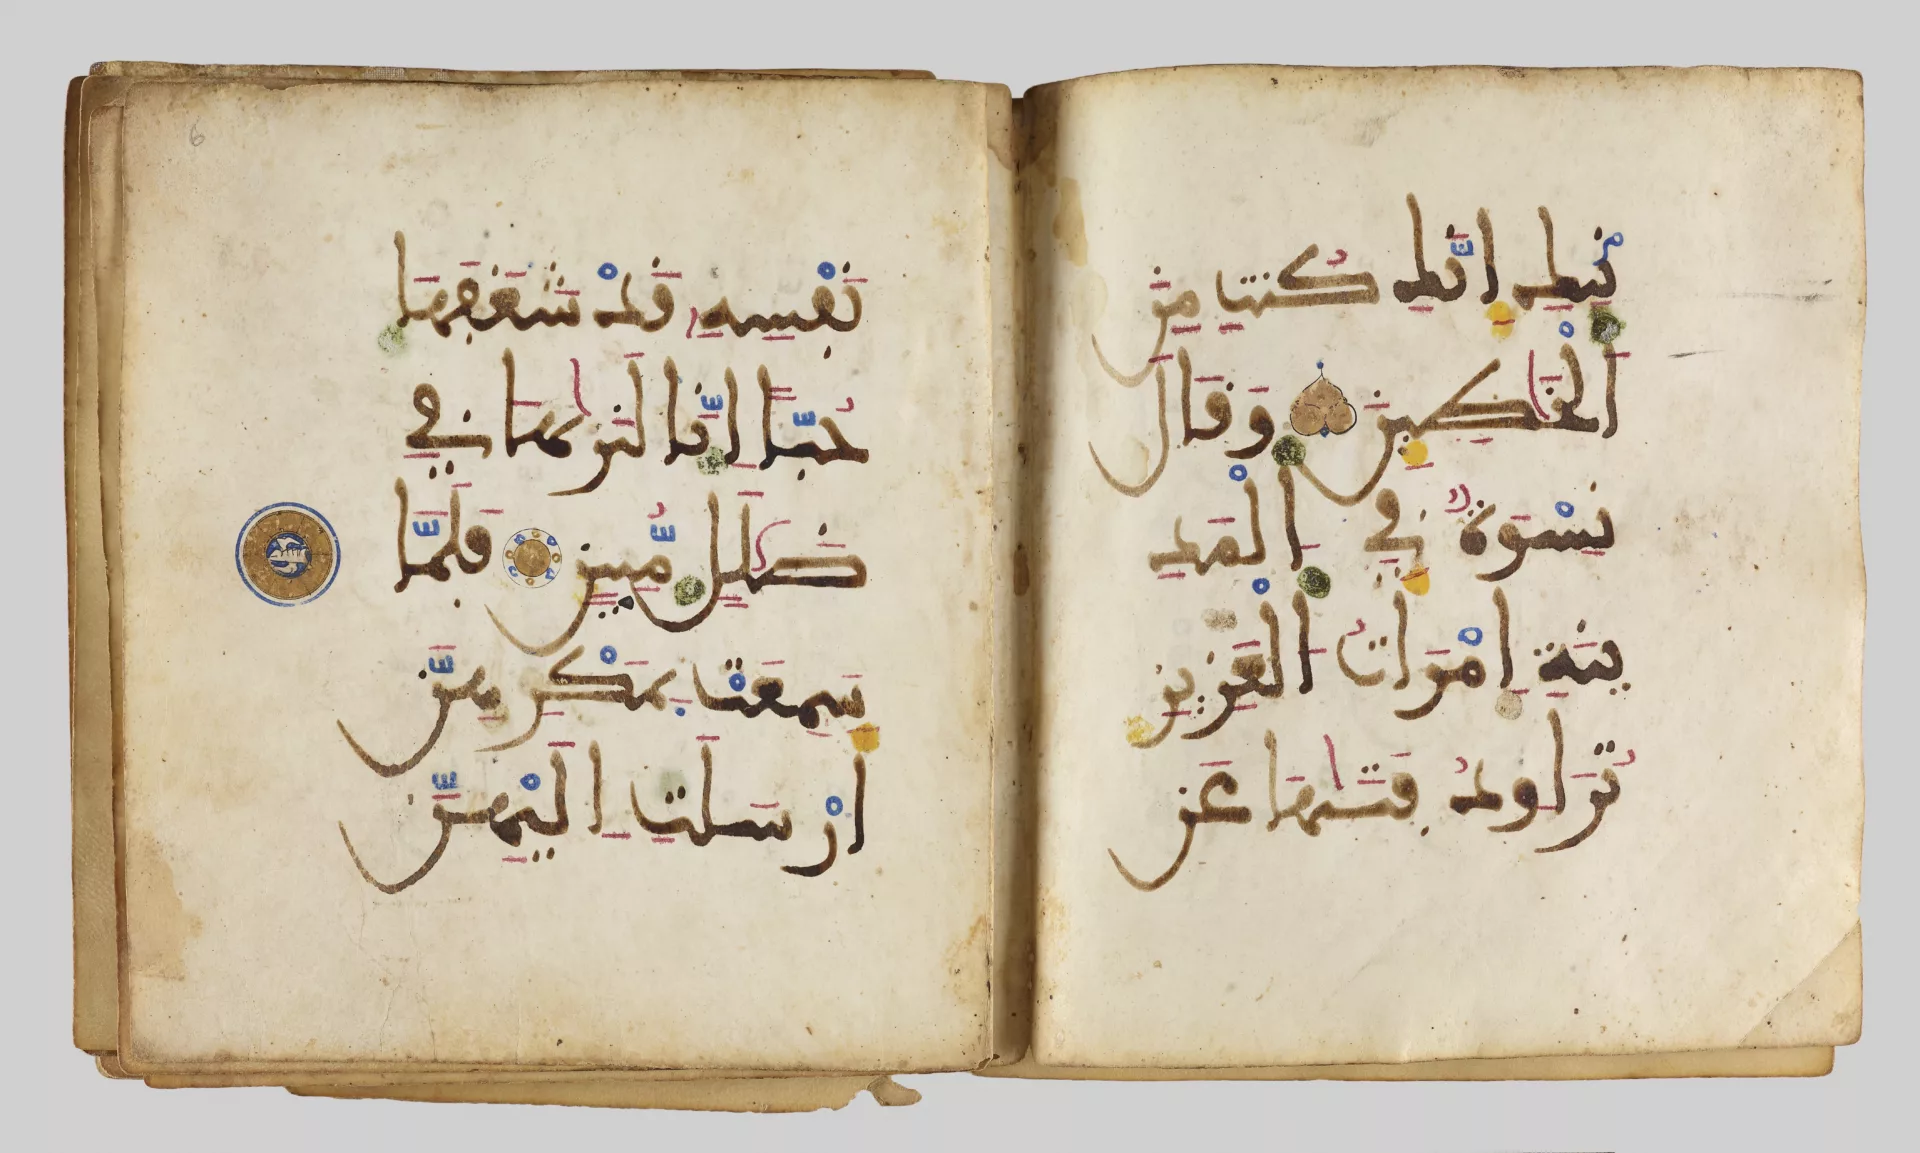 نۢبِكِ إِنَّكِ كُنتِ مِنَ
ٱلْخَٰطِـِٕينَ وَقَالَ
نِسْوَةٌ فِي ٱلْمَدِ
ينَةِ ٱمْرَأَتُ ٱلْعَزِيزِ
تُرَٰوِدُ فَتَىٰهَا عَن
6
نَّفْسِهِۦ قَدْ شَغَفَهَا
حُبًّا إِنَّا لَنَرَىٰهَا فِي
ضَلَٰلٍ مُّبِينٍ فَلَمَّا
سَمِعَتْ بِمَكْرِهِنَّ
أَرْسَلَتِ اِلَيْهِنَّ